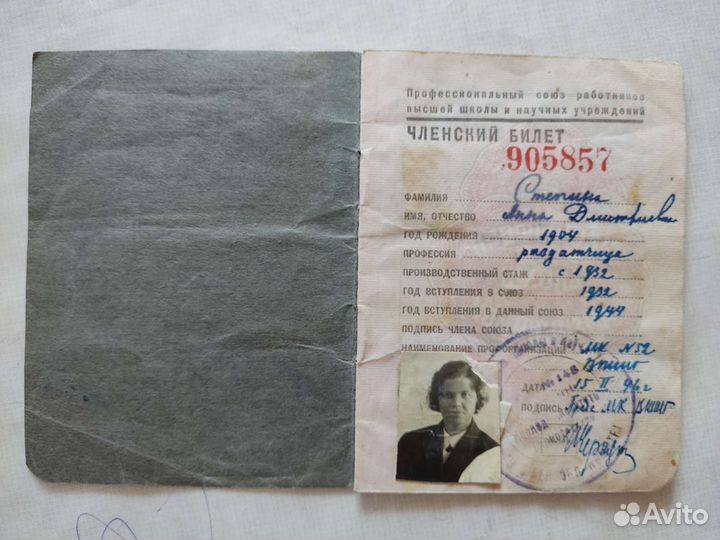 Профессиональный союз работников
высшей школы и научных учреждений
ЧЛЕНСКИЙ БИЛЕТ
905857
ФАМИЛИЯ Степина
ИМЯ, ОТЧЕСТВО Анна Дмитриевна
ГОД РОЖДЕНИЯ 1904
ПРОФЕССИЯ раздатчица
ПРОИЗВОДСТВЕННЫЙ СТАЖ с 1932
ГОД ВСТУПЛЕНИЯ В СОЮЗ 1932
ГОД ВСТУПЛЕНИЯ В ДАННЫЙ СОЮЗ 1944
ПОДПИСЬ ЧЛЕНА СОЮЗА
НАИМЕНОВАНИЕ ПРОФОРГАНИЗАЦИИ МК N52
ДАТА 15 II 46 г
ПОДПИСЬ Пред. МК
№ 148
Avito